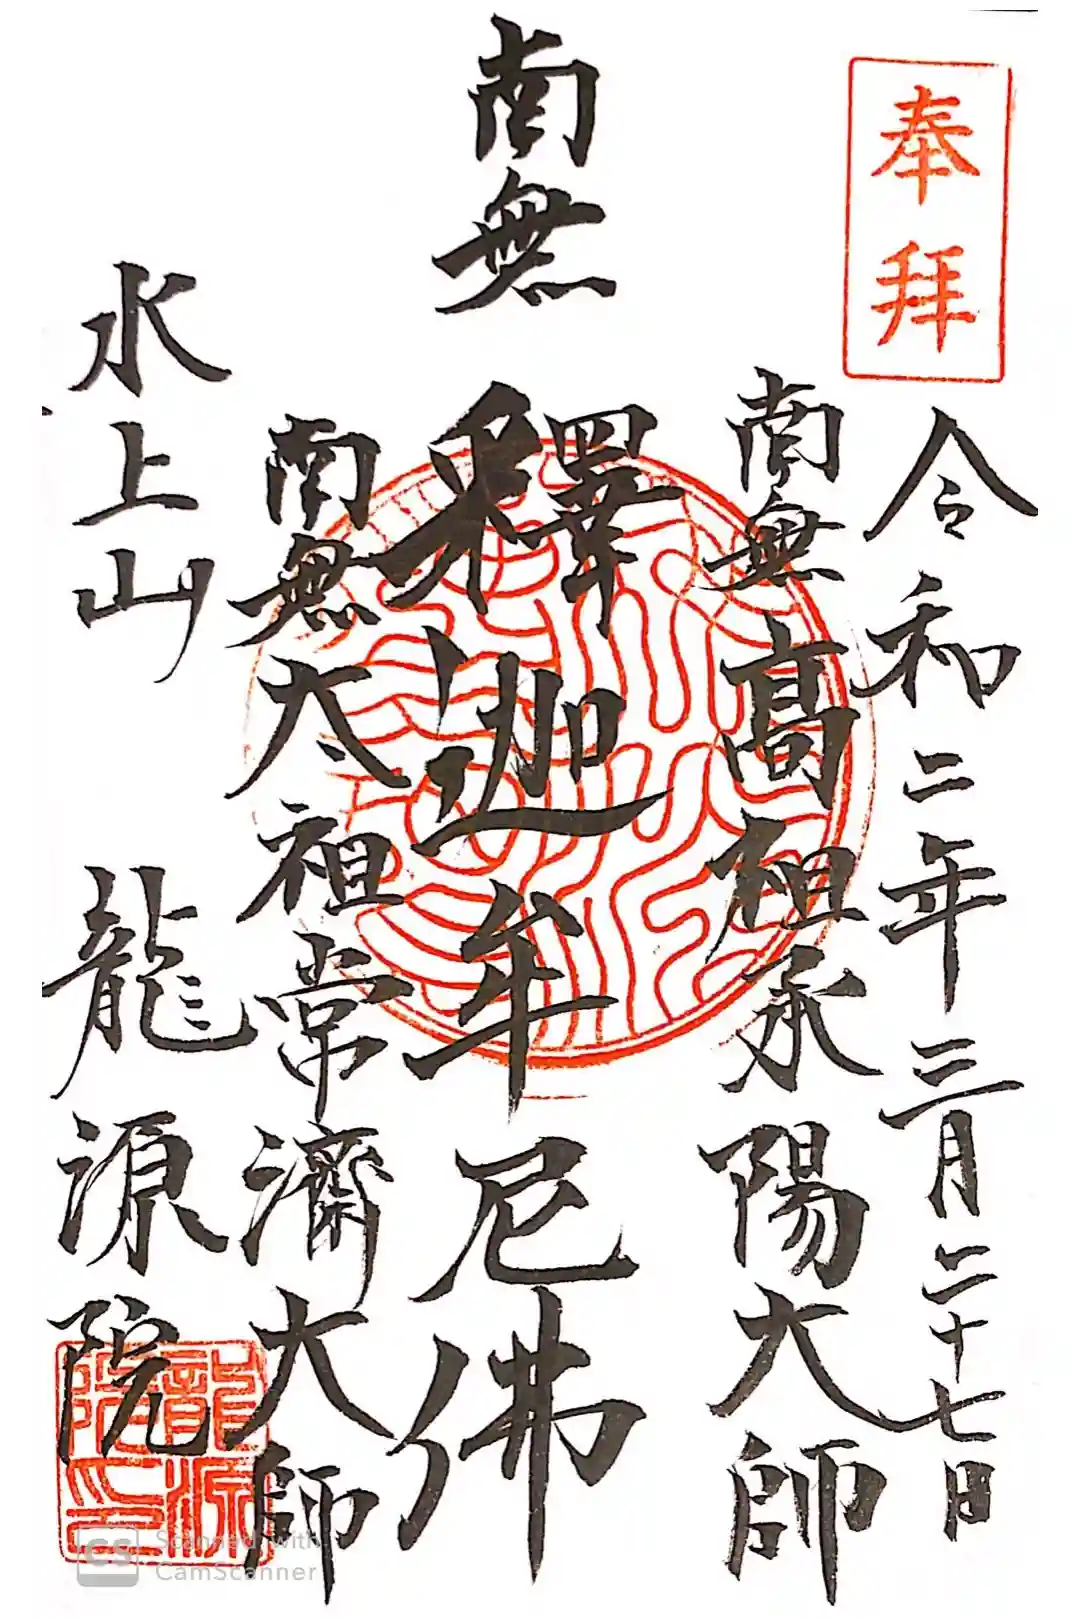 奉拜
令和二年三月二十七日
南無高祖承陽大師
南無釋迦牟尼佛
南無太祖常濟大師
水上山 龍源院
龍源院印
CS Scanned with
CamScanner